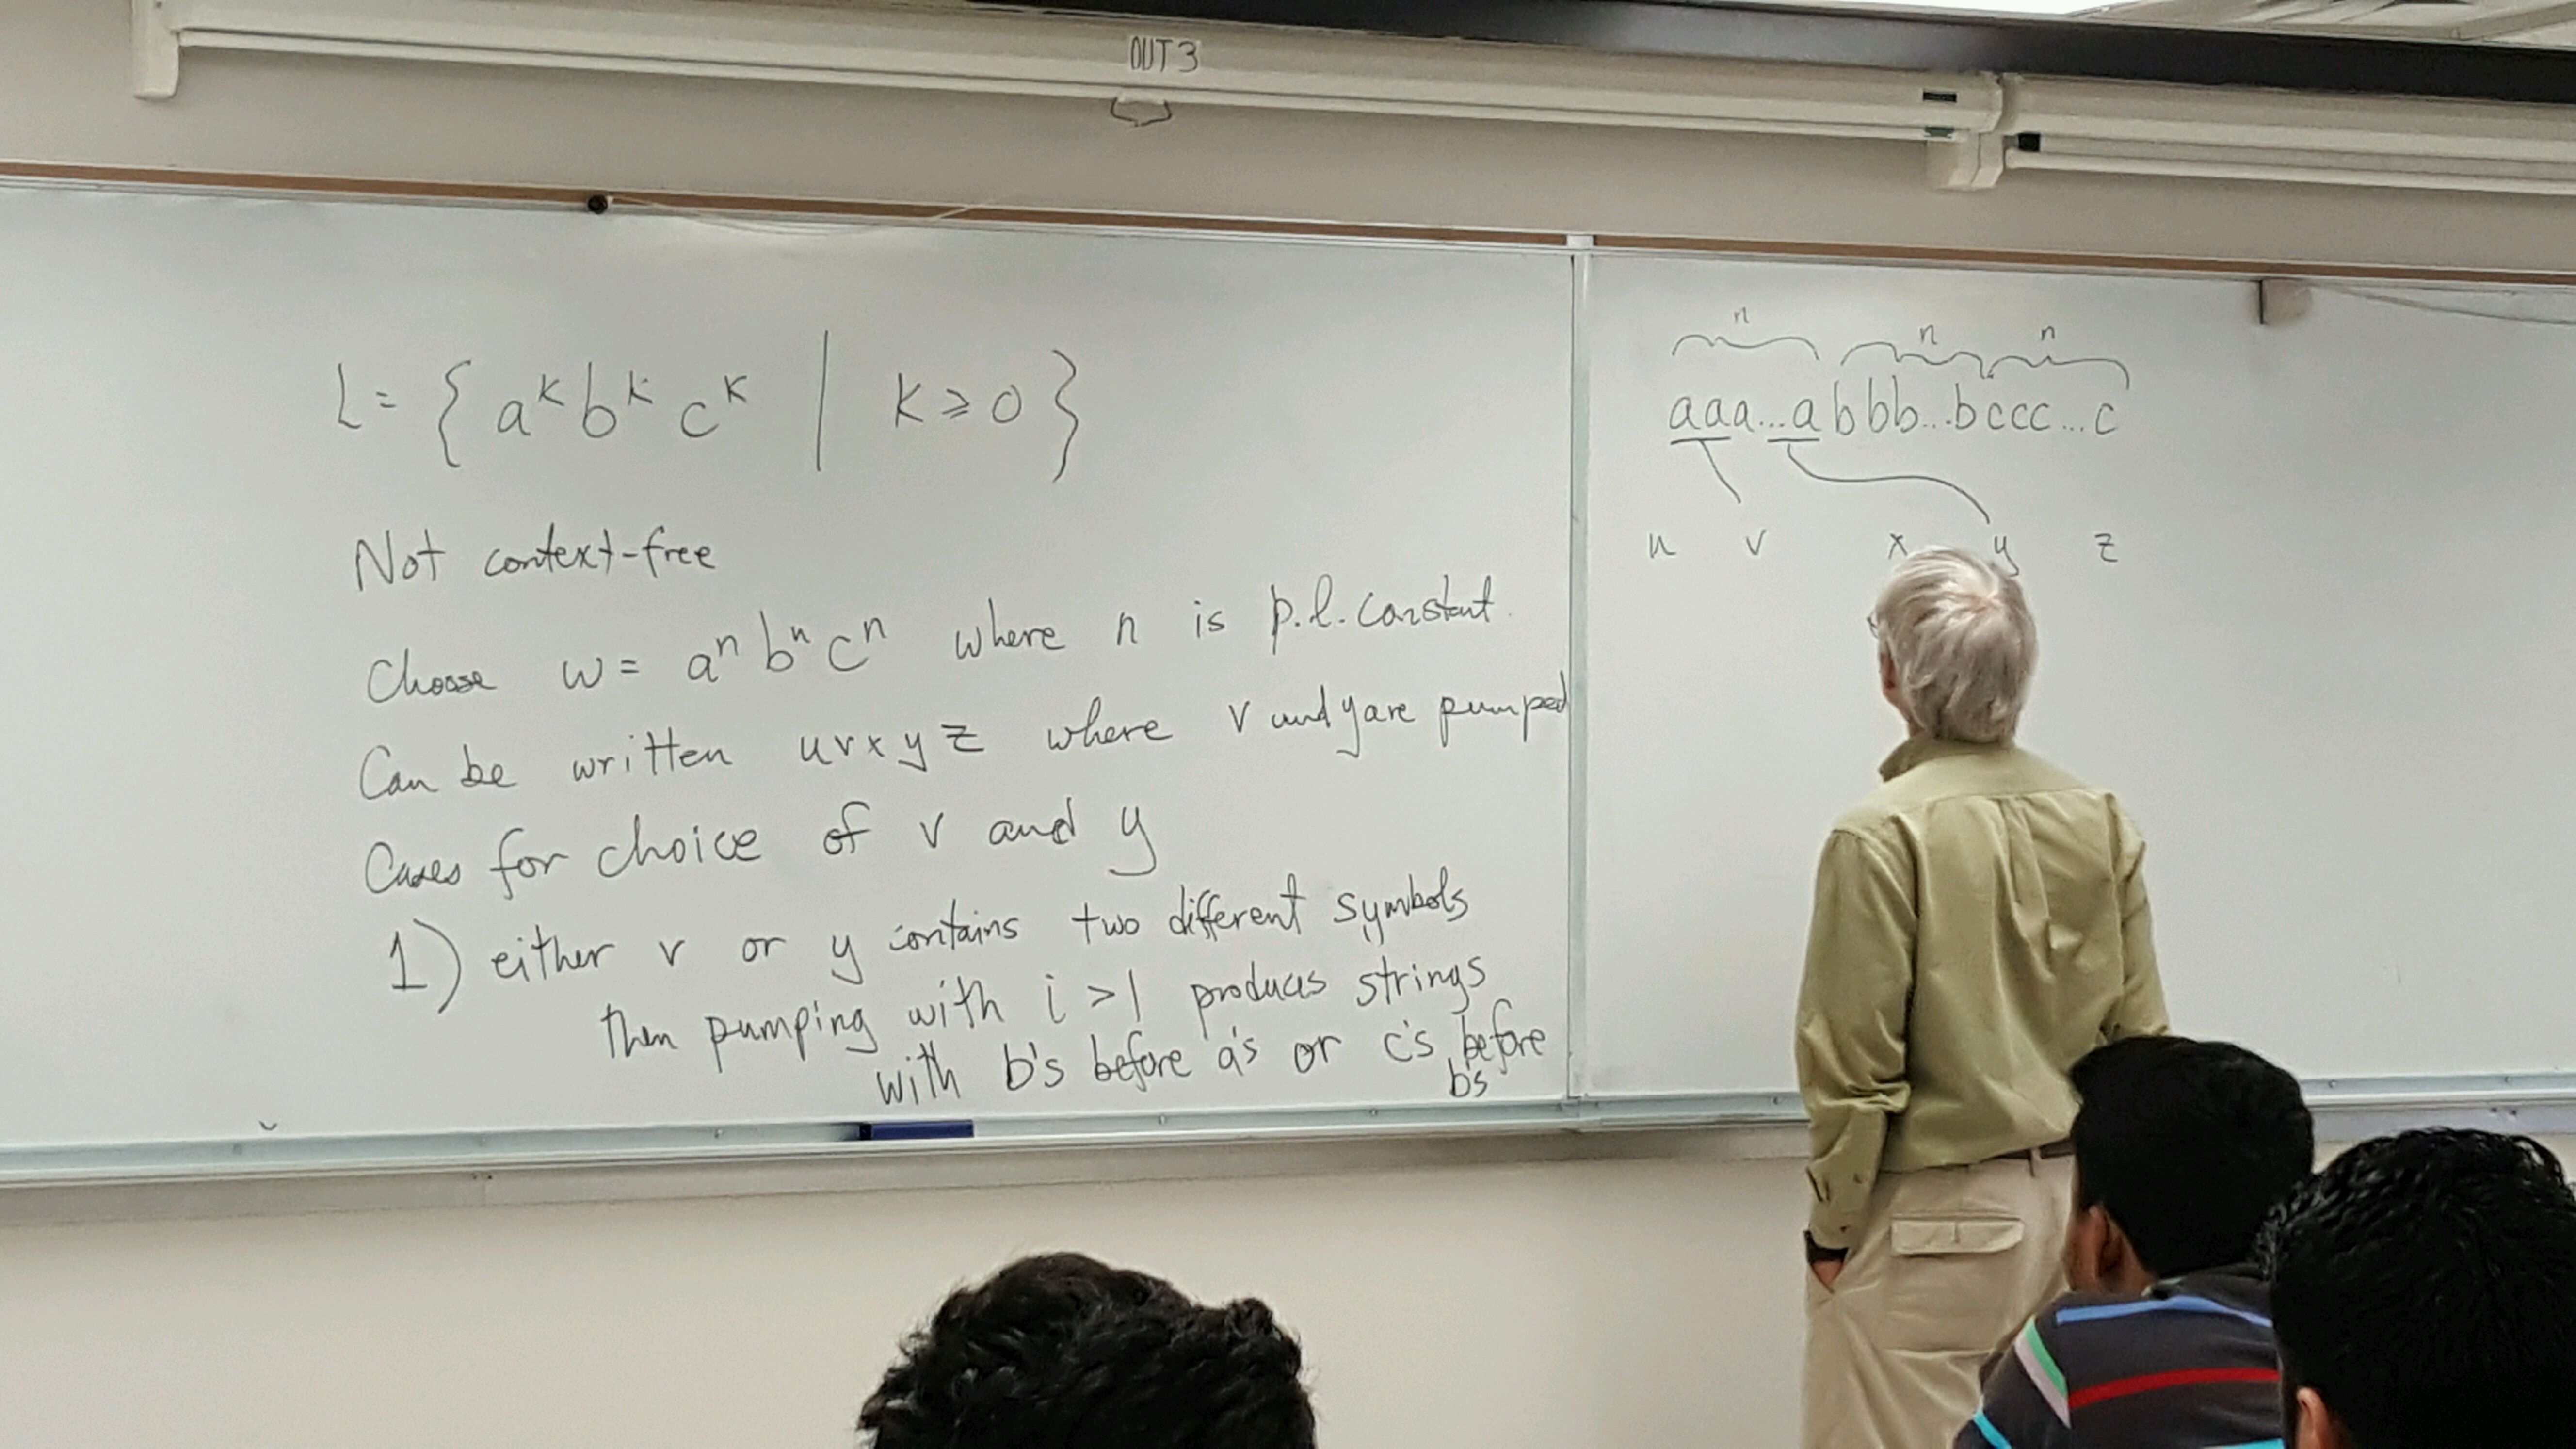 OUT 3
L = { a^k b^k c^k | k ≥ 0 }
Not context-free
Choose w = a^n b^n c^n where n is p.l. constant.
Can be written uvxyz where v and y are pumped
Cases for choice of v and y
1) either v or y contains two different symbols
then pumping with i > 1 produces strings
with b's before a's or c's before
b's
n n n
aaa...abbb...bccc...c
u v x y z